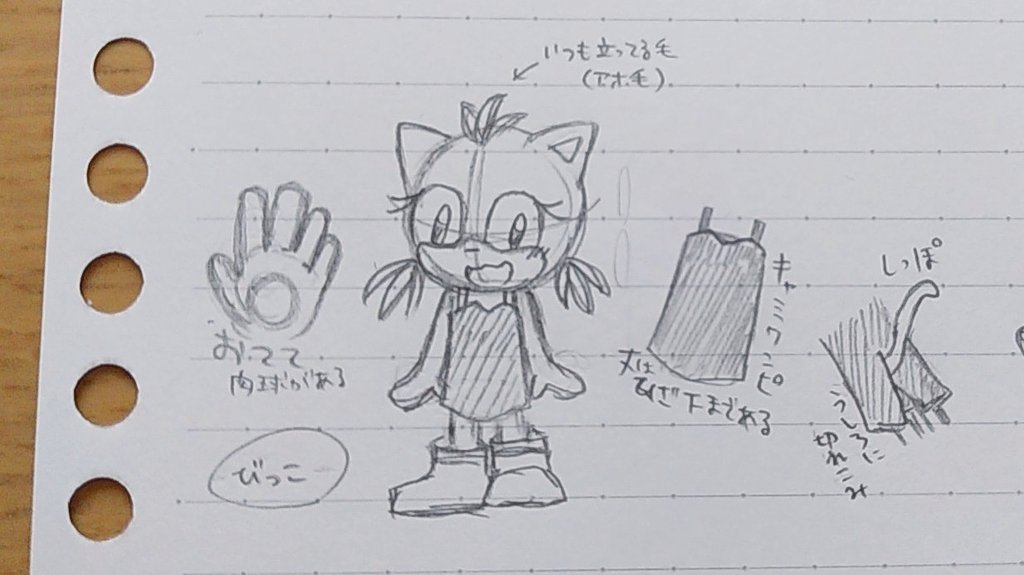 いつも立ってる毛
(アホ毛)
おてて
肉球がある
びっこ
キャミワンピ
丈は
ひざ下まである
しっぽ
うしろに
切れこみ